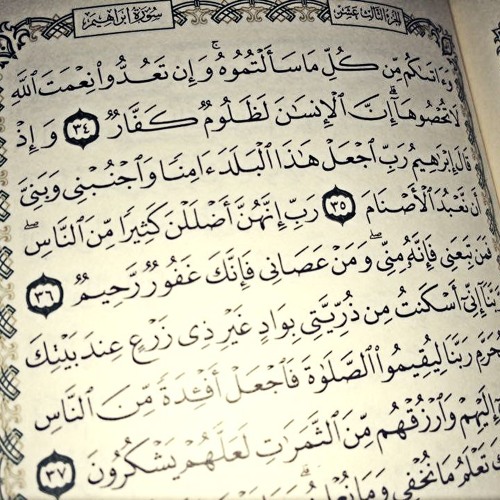 الجزء الثالث عشر
سورة إبراهيم
وَءَاتَىٰكُم مِّن كُلِّ مَا سَأَلْتُمُوهُ ۚ وَإِن تَعُدُّوا۟ نِعْمَتَ ٱللَّهِ
لَا تُحْصُوهَآ ۗ إِنَّ ٱلْإِنسَـٰنَ لَظَلُومٌ كَفَّارٌ ٣٤ وَإِذْ
قَالَ إِبْرَٰهِيمُ رَبِّ ٱجْعَلْ هَـٰذَا ٱلْبَلَدَ ءَامِنًا وَٱجْنُبْنِى وَبَنِىَّ
أَن نَّعْبُدَ ٱلْأَصْنَامَ ٣٥ رَبِّ إِنَّهُنَّ أَضْلَلْنَ كَثِيرًا مِّنَ ٱلنَّاسِ ۖ
فَمَن تَبِعَنِى فَإِنَّهُۥ مِنِّى ۖ وَمَنْ عَصَانِى فَإِنَّكَ غَفُورٌ رَّحِيمٌ ٣٦
رَّبَّنَآ إِنِّىٓ أَسْكَنتُ مِن ذُرِّيَّتِى بِوَادٍ غَيْرِ ذِى زَرْعٍ عِندَ بَيْتِكَ
ٱلْمُحَرَّمِ رَبَّنَا لِيُقِيمُوا۟ ٱلصَّلَوٰةَ فَٱجْعَلْ أَفْـِٔدَةً مِّنَ ٱلنَّاسِ
إِلَيْهِمْ وَٱرْزُقْهُم مِّنَ ٱلثَّمَرَٰتِ لَعَلَّهُمْ يَشْكُرُونَ ٣٧
تَعْلَمُ مَا نُخْفِى وَمَا نُعْلِنُ